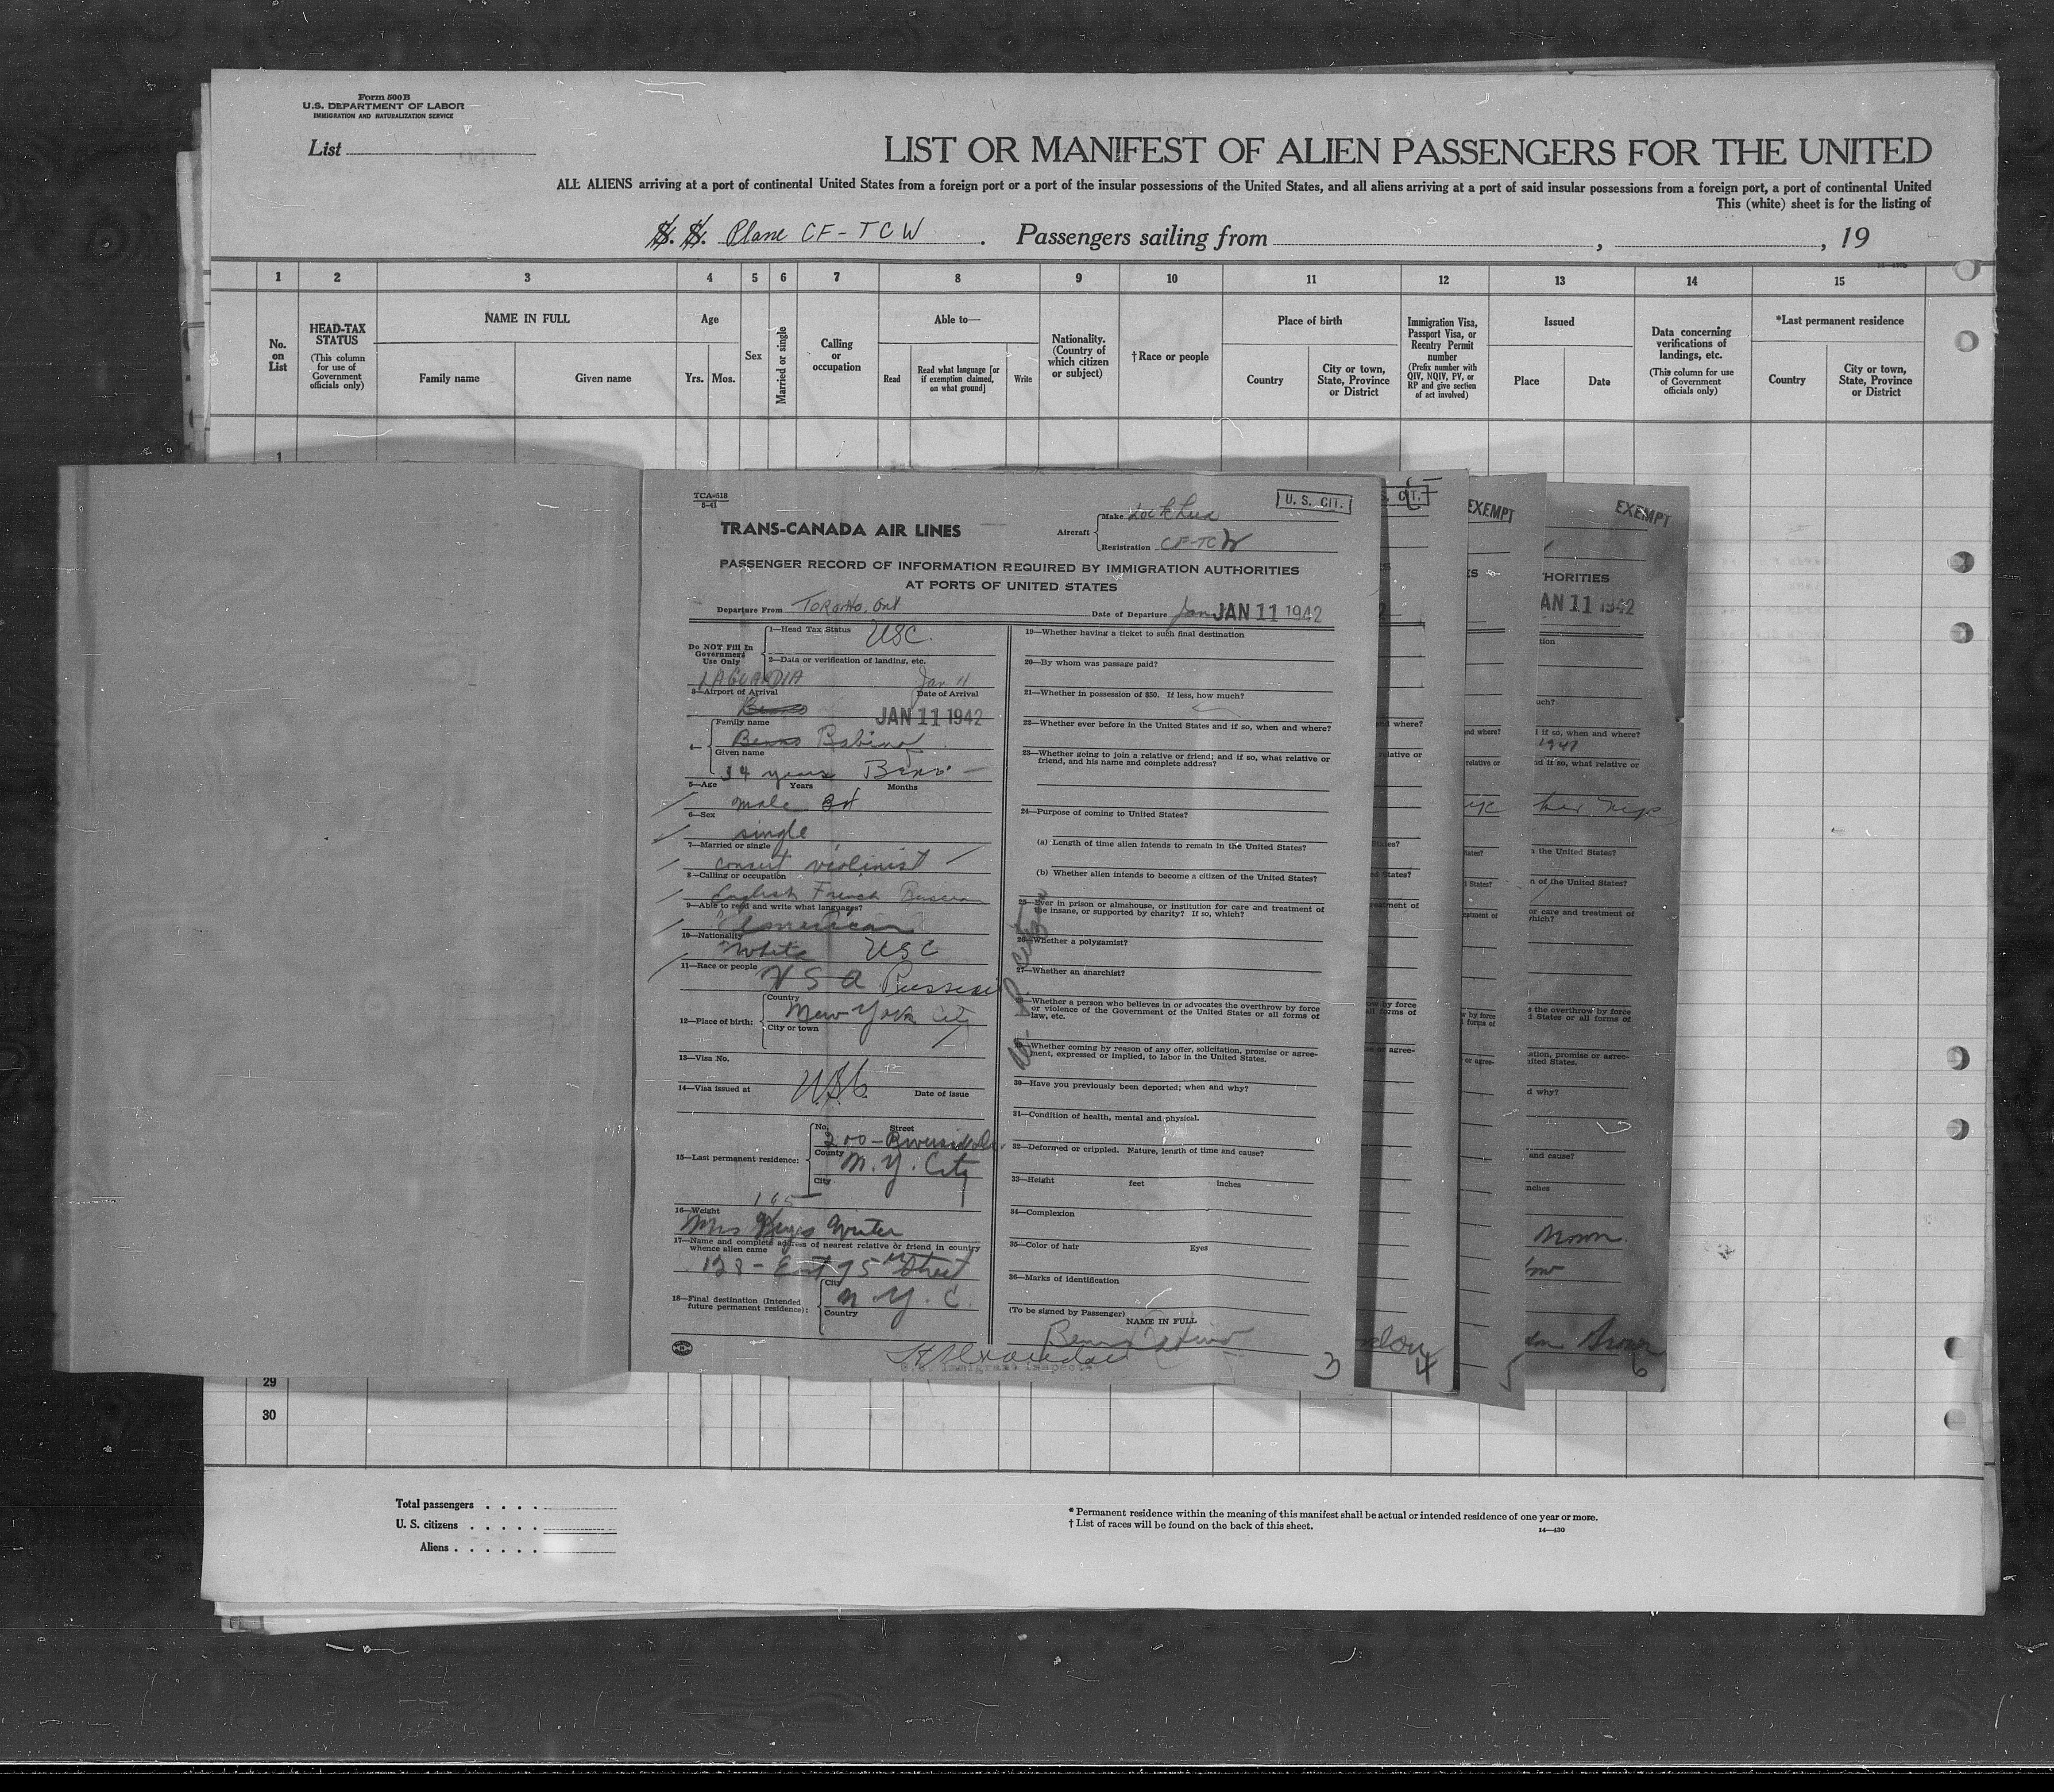 Form 500B
U.S. DEPARTMENT OF LABOR
IMMIGRATION AND NATURALIZATION SERVICE
List
LIST OR MANIFEST OF ALIEN PASSENGERS FOR THE UNITED
ALL ALIENS arriving at a port of continental United States from a foreign port or a port of the insular possessions of the United States, and all aliens arriving at a port of said insular possessions from a foreign port, a port of continental United
This (white) sheet is for the listing of
S. S. Plane CF-TCW . Passengers sailing from , , 19
1 2 3 4 5 6 7 8 9 10 11 12 13 14 15
No. on List
HEAD-TAX STATUS
(This column for use of Government officials only)
NAME IN FULL
Family name
Given name
Age
Yrs. Mos.
Sex
Married or single
Calling or occupation
Able to—
Read
Read what language [or if exemption claimed, on what ground]
Write
Nationality. (Country of which citizen or subject)
†Race or people
Place of birth
Country
City or town, State, Province or District
Immigration Visa, Passport Visa, or Reentry Permit number
(Prefix number with QIV, NQIV, PV, or RP and give section of act involved)
Issued
Place
Date
Data concerning verifications of landings, etc.
(This column for use of Government officials only)
*Last permanent residence
Country
City or town, State, Province or District
1
TCA-518
5-41
TRANS-CANADA AIR LINES
Aircraft
Make Lockheed
Registration CF-TCW
U. S. CIT.
PASSENGER RECORD OF INFORMATION REQUIRED BY IMMIGRATION AUTHORITIES
AT PORTS OF UNITED STATES
Departure From Toronto, Ont
Date of Departure Jan JAN 11 1942
Do NOT Fill In Government Use Only
1—Head Tax Status USC.
2—Data or verification of landing, etc.
LAGUARDIA Jan 11
3—Airport of Arrival Date of Arrival
Beno
JAN 11 1942
4— Family name
Beno Rabinof
Given name
34 years Beno
5—Age Years Months
male
6—Sex
single
7—Married or single
concert violinist
8—Calling or occupation
English French Russian
9—Able to read and write what languages?
American
10—Nationality
White USC
11—Race or people
U S A Russian
Country
12—Place of birth: New York City
City or town
13—Visa No.
14—Visa issued at USC Date of issue
No. Street
200 - Riverside Dr.
County
15—Last permanent residence: N.Y. City
City
165
16—Weight
Mrs
17—Name and complete address of nearest relative or friend in country whence alien came
128 - East 95th Street
City
18—Final destination (Intended future permanent residence): N.Y.C.
Country
19—Whether having a ticket to such final destination
20—By whom was passage paid?
21—Whether in possession of $50. If less, how much?
22—Whether ever before in the United States and if so, when and where?
23—Whether going to join a relative or friend; and if so, what relative or friend, and his name and complete address?
24—Purpose of coming to United States?
(a) Length of time alien intends to remain in the United States?
(b) Whether alien intends to become a citizen of the United States?
25—Ever in prison or almshouse, or institution for care and treatment of the insane, or supported by charity? If so, which?
26—Whether a polygamist?
27—Whether an anarchist?
28—Whether a person who believes in or advocates the overthrow by force or violence of the Government of the United States or all forms of law, etc.
29—Whether coming by reason of any offer, solicitation, promise or agreement, expressed or implied, to labor in the United States.
30—Have you previously been deported; when and why?
31—Condition of health, mental and physical.
32—Deformed or crippled. Nature, length of time and cause?
33—Height feet inches
34—Complexion
35—Color of hair Eyes
36—Marks of identification
(To be signed by Passenger)
NAME IN FULL
Beno Rabinof
U.S. Immigrant Inspector
3
4
5
6
EXEMPT
EXEMPT
THORITIES
JAN 11 1942
1941
Brown
29
30
Total passengers . . . .
U. S. citizens . . . . .
Aliens . . . . . .
* Permanent residence within the meaning of this manifest shall be actual or intended residence of one year or more.
† List of races will be found on the back of this sheet.
14—430